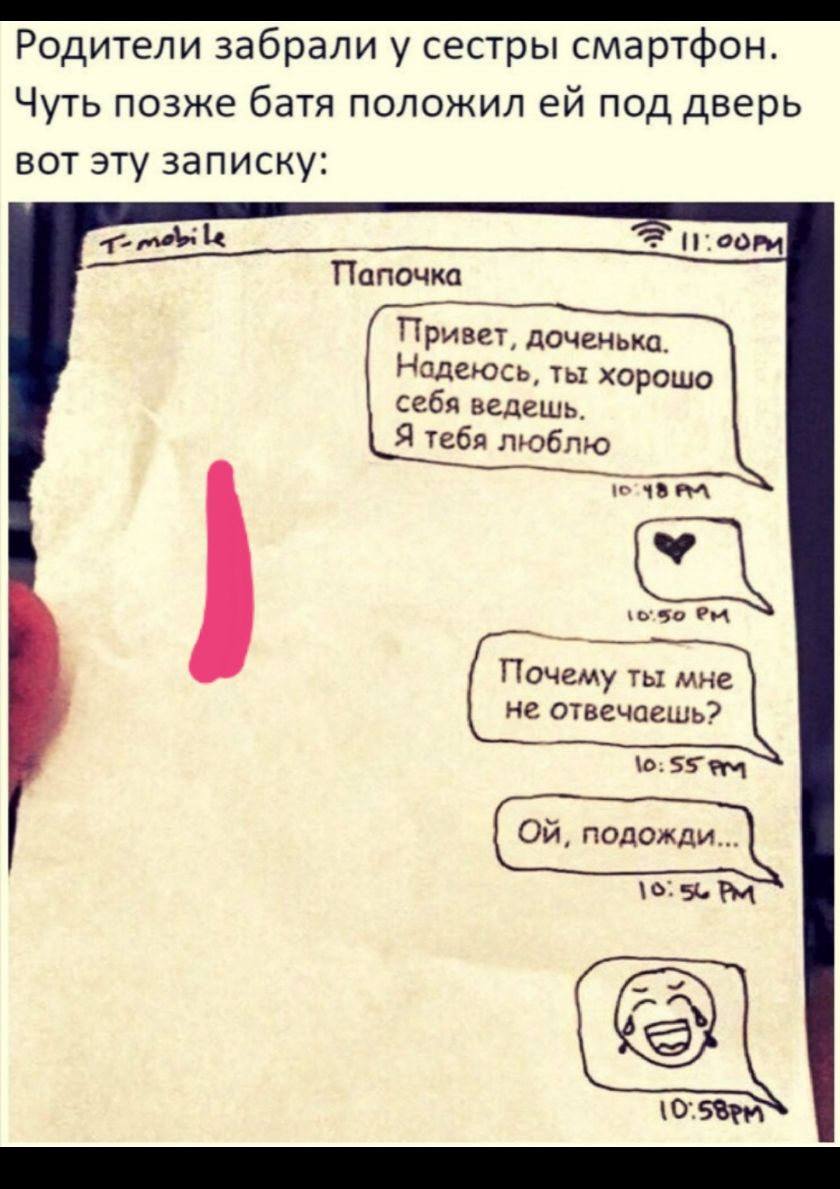 Родители забрали у сестры смартфон.
Чуть позже батя положил ей под дверь
вот эту записку:
T-mobile 11:00PM
Папочка
Привет, доченька.
Надеюсь, ты хорошо
себя ведешь.
Я тебя люблю
10:48 PM
10:50 PM
Почему ты мне
не отвечаешь?
10:55 PM
Ой, подожди...
10:56 PM
10:58PM